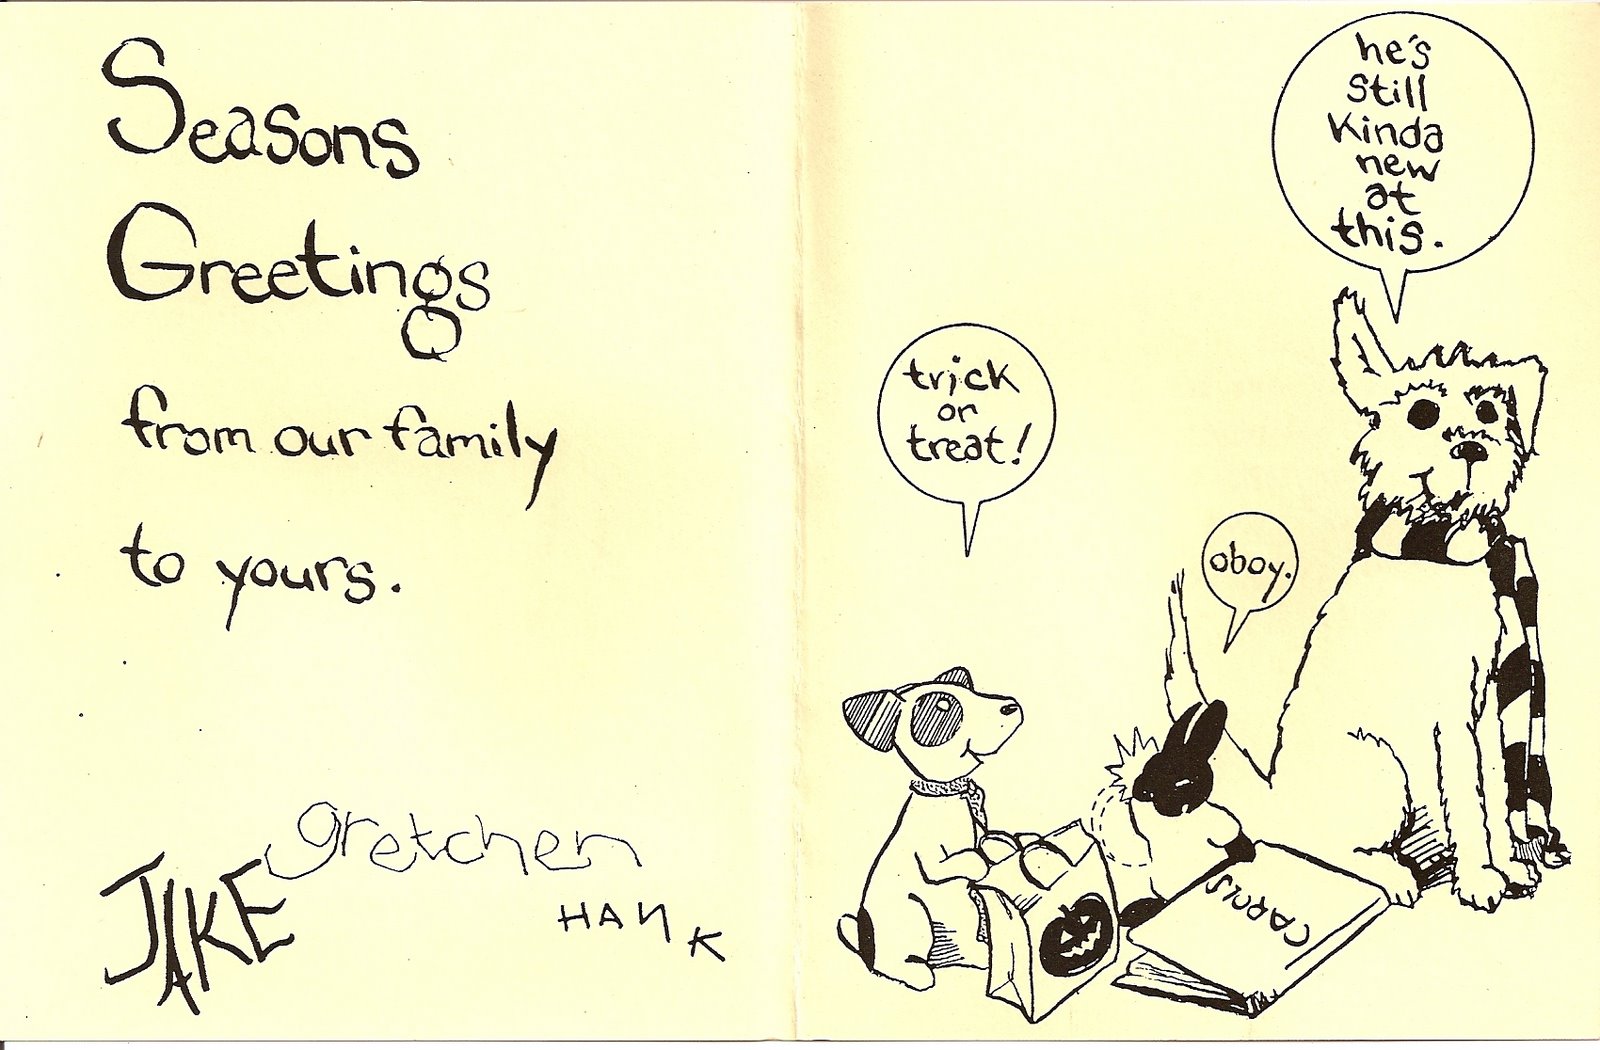 Seasons
Greetings
from our family
to yours.
gretchen
JAKE
HANK
he's
still
kinda
new
at
this.
trick
or
treat!
oboy.
CAROLS